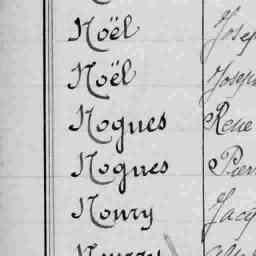 Noël Josep
Noël Joseph
Nogues René
Nogues Pierr
Noury Jacq